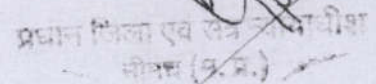 प्रधान जिला एवं सत्र न्यायाधीश
नीमच (म.प्र.)